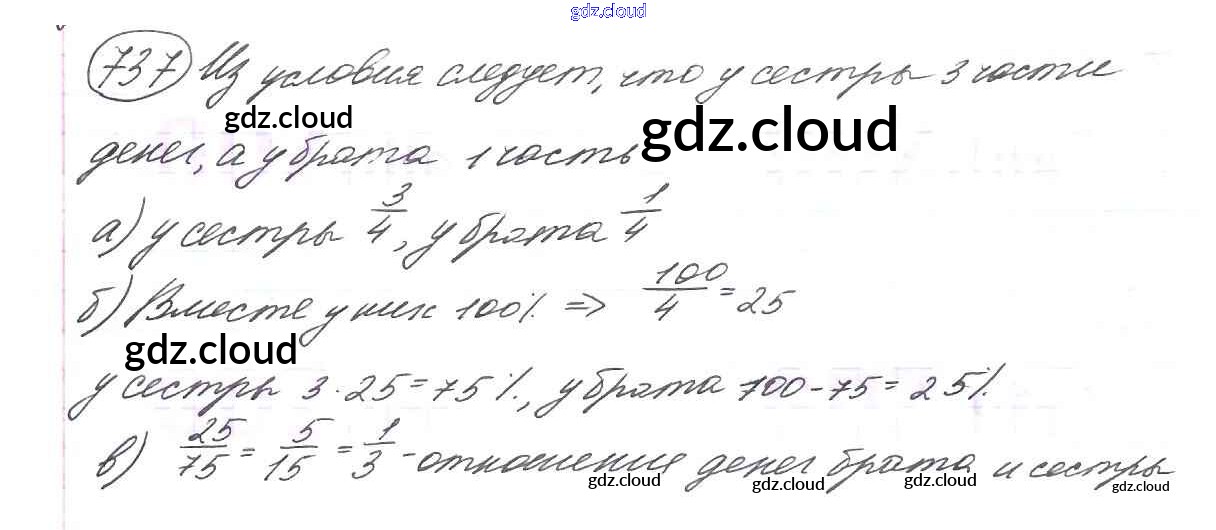 gdz.cloud
737 Из условия следует, что у сестры 3 части
gdz.cloud gdz.cloud
денег, а у брата 1 часть
а) у сестры 3/4, у брата 1/4
б) Вместе у них 100% => 100/4 = 25
gdz.cloud
у сестры 3·25=75%, у брата 100-75=25%.
в) 25/75 = 5/15 = 1/3 - отношение денег брата и сестры
gdz.cloud gdz.cloud gdz.cloud gdz.cloud